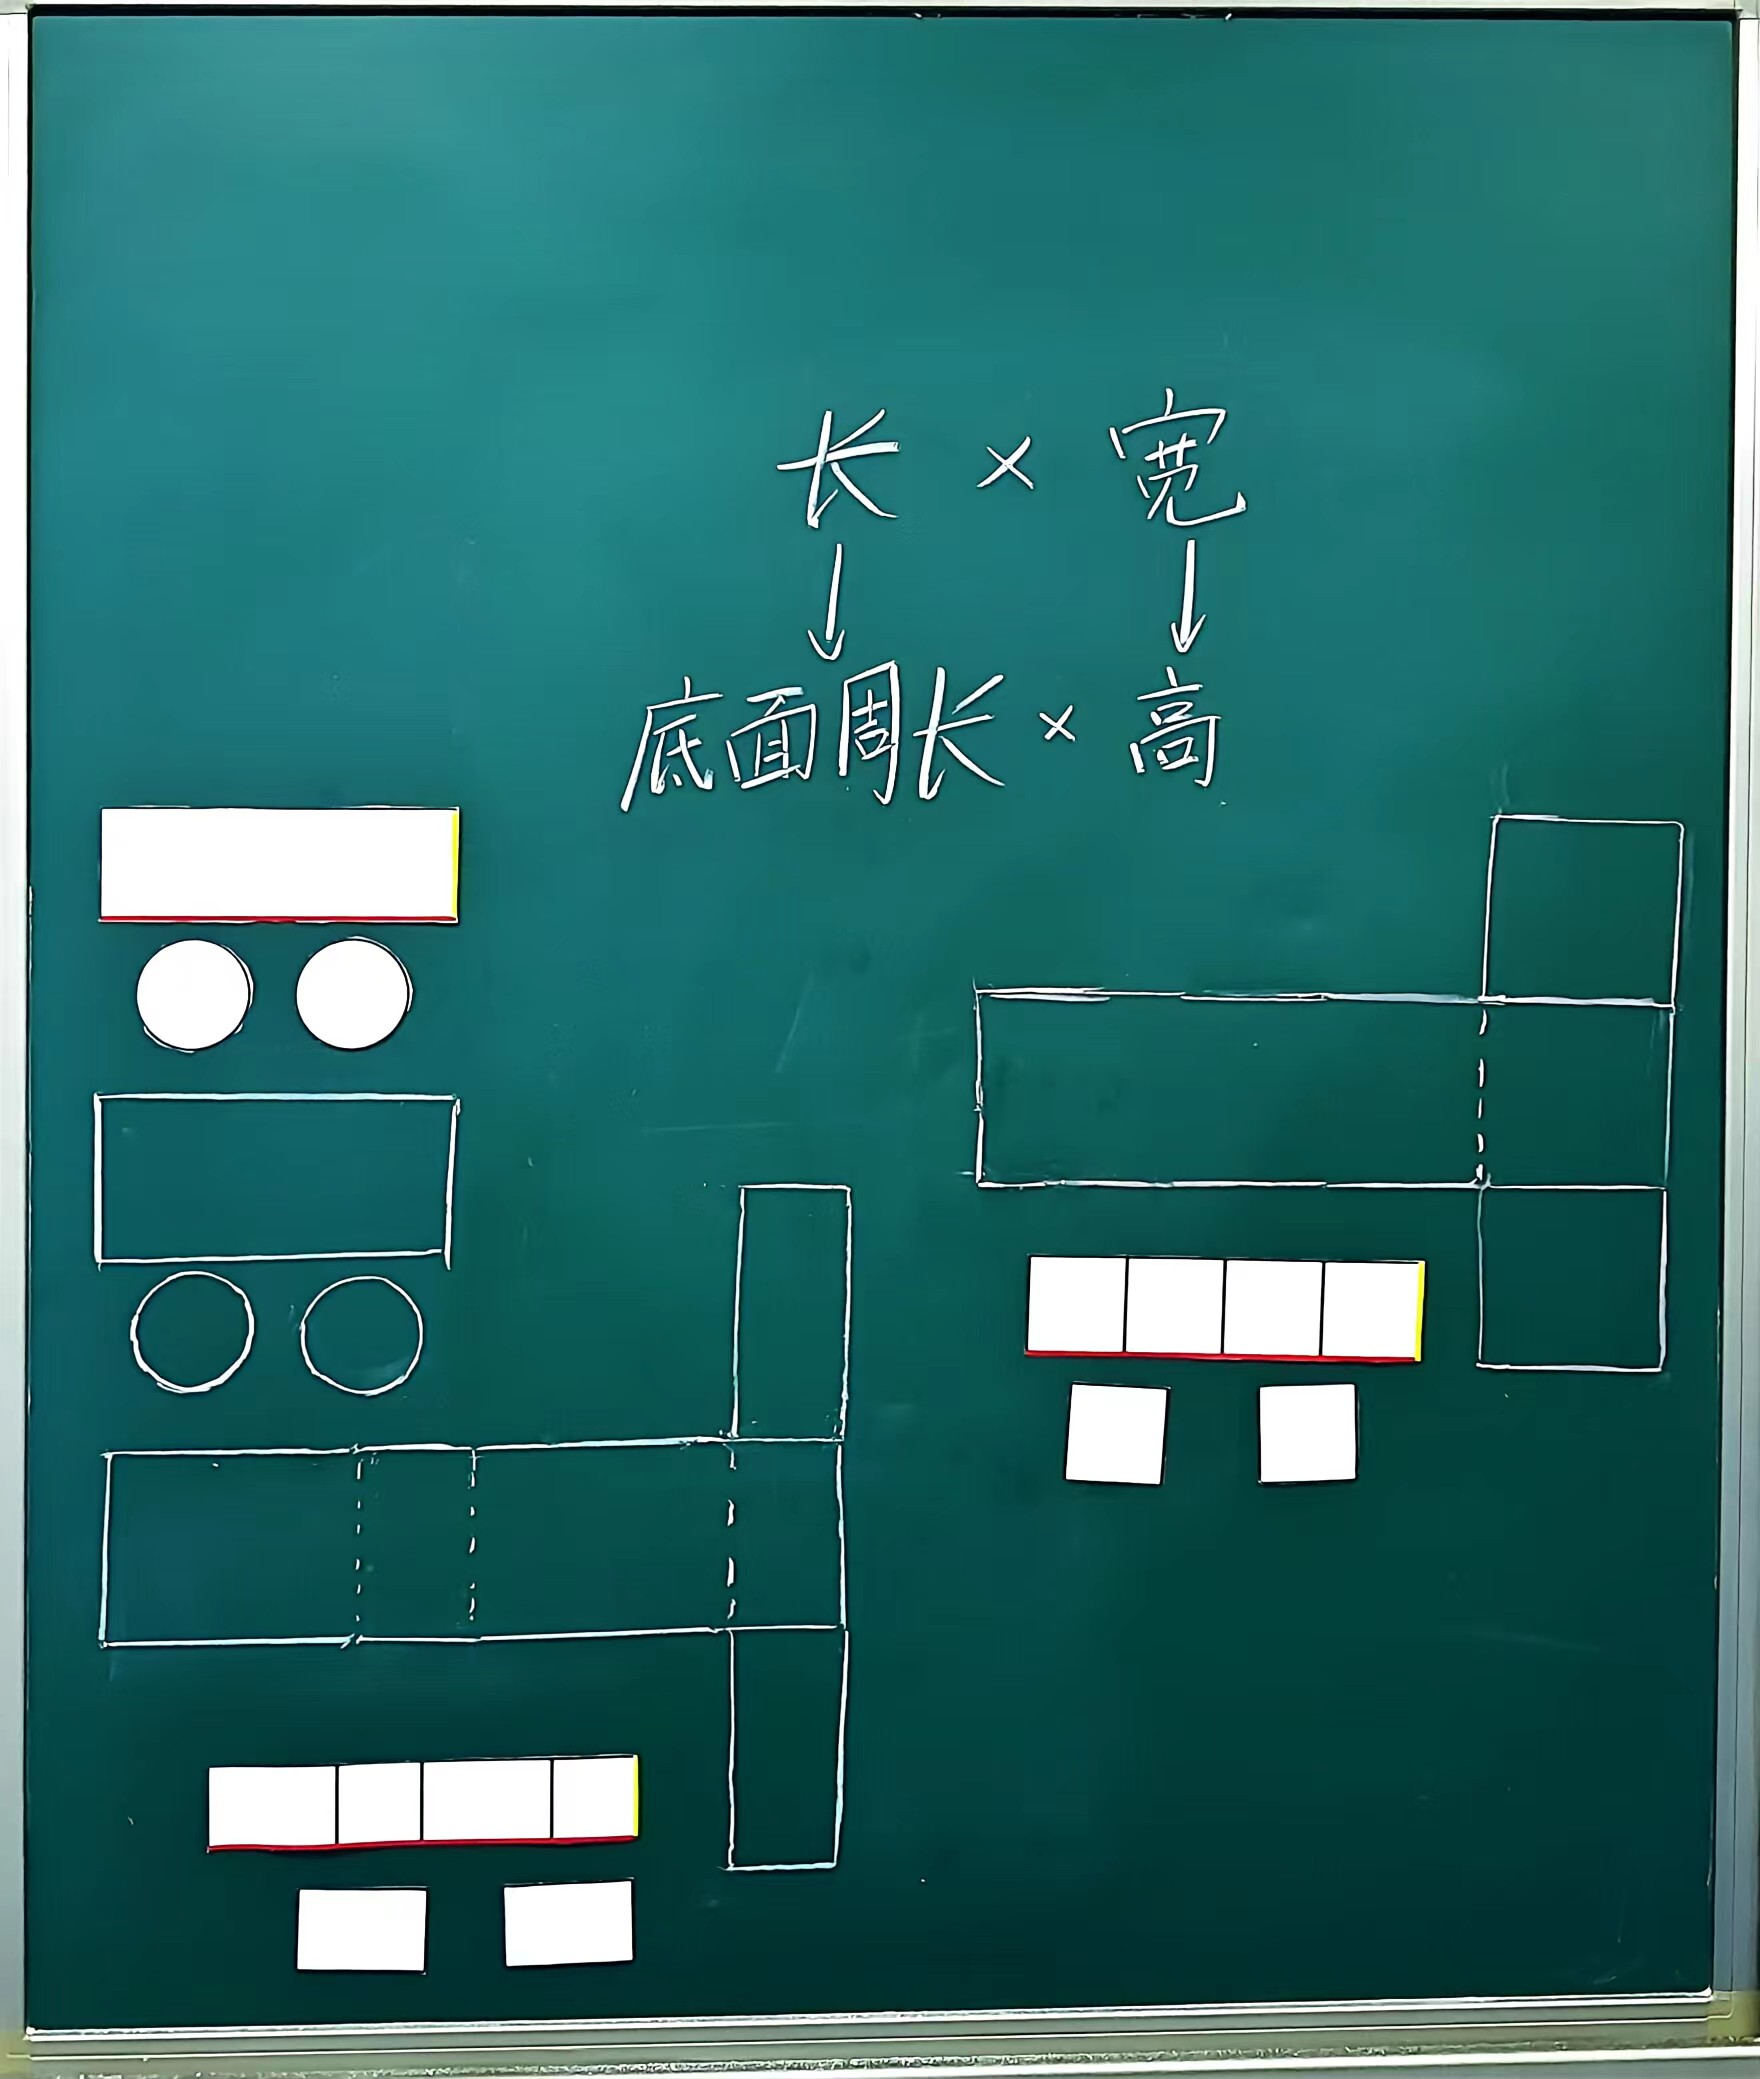 长 × 宽
底面周长 × 高